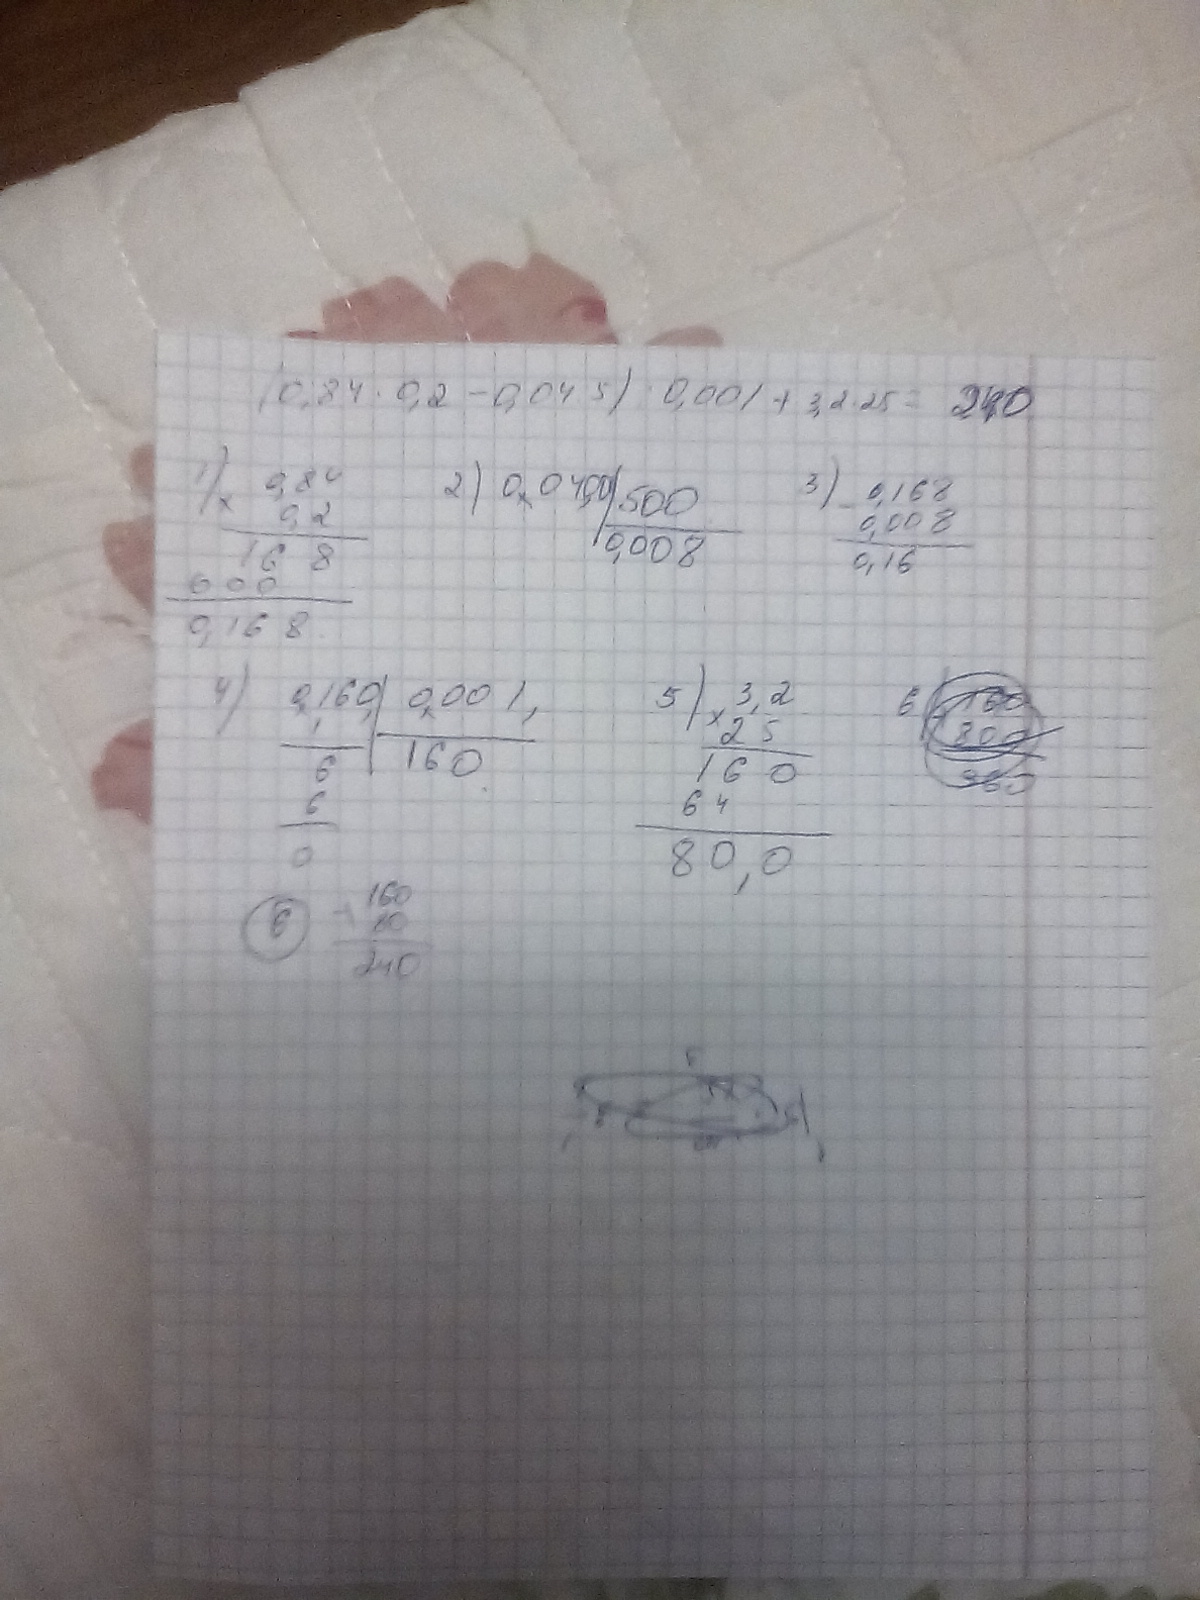 (0,84 · 0,2 - 0,04 : 5) : 0,001 + 3,2 · 25 = 240
1) × 0,84 2) 0,0400 500 3) - 0,168
0,2 0,008 0,008
168 0,16
000
0,168
4) 0,160, 0,001, 5) × 3,2 6) 160
1 160 25 800
6 160 960
6 64
0 80,0
6 + 160
80
240